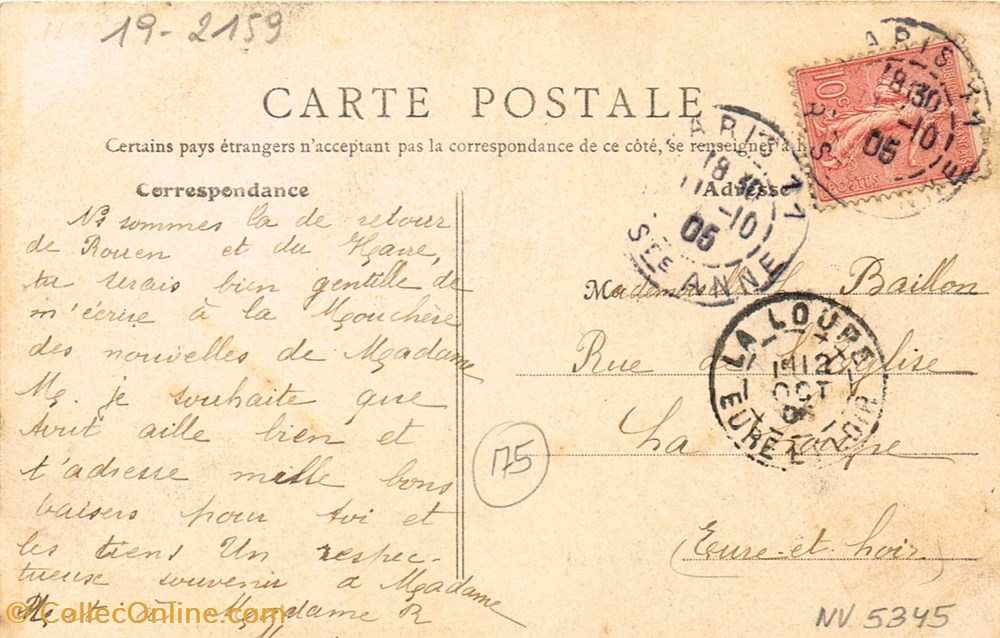 19-2159
CARTE POSTALE
Certains pays étrangers n'acceptant pas la correspondance de ce côté, se renseigner à
Correspondance
Ns sommes là de retour
de Rouen et du Havre,
tu serais bien gentille de
m'écrire à la Mouchère
des nouvelles de Madame
M. je souhaite que
tout aille bien et
t'adresse mille bons
baisers pour toi et
les tiens Un respec-
tueuse souvenir à Madame
à Madame R
Adresse
Mademoiselle L. Baillon
Rue de l'Église
La Loupe
Eure-et-Loir
10c
POSTES
PARIS 77
18 30
11 -10
05
STE ANNE
PARIS 77
18 30
-10
05
LA LOUPE
12
OCT
05
EURE-ET-LOIR
75
NV 5345
© CollecOnline.com